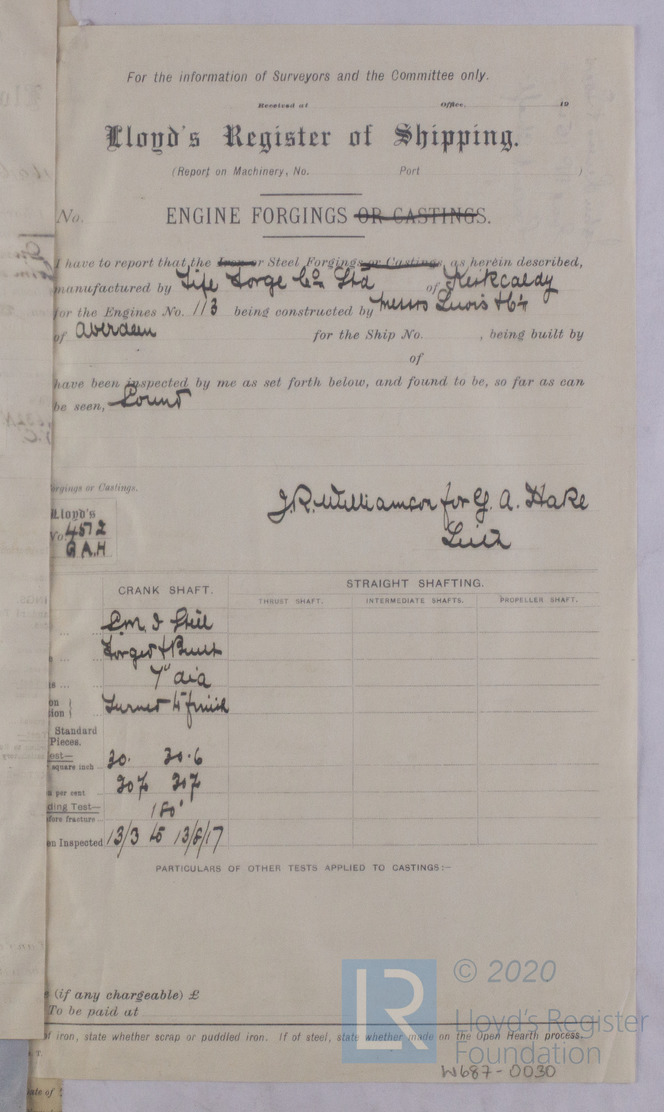 For the information of Surveyors and the Committee only.
Received at Office, 19
Lloyd's Register of Shipping.
(Report on Machinery, No. Port )
No. ENGINE FORGINGS OR CASTINGS.
I have to report that the Iron or Steel Forgings or Castings, as herein described,
manufactured by Fife Forge Co Ltd of Kirkcaldy
for the Engines No. 113 being constructed by Messrs Lewis & Co
of Aberdeen for the Ship No. , being built by
of
have been inspected by me as set forth below, and found to be, so far as can
be seen, Sound
orgings or Castings.
J.R. Williamson for G. A. Hake
Leith
Lloyd's
No 4572
G A H
CRANK SHAFT. STRAIGHT SHAFTING.
THRUST SHAFT. INTERMEDIATE SHAFTS. PROPELLER SHAFT.
Steel
Forged & Built
7" dia
Turned to finish
Standard
Pieces.
30. 30.6
square inch
30% 31%
per cent
ding Test—
180°
fore fracture
en Inspected 13/3 to 13/8/17
PARTICULARS OF OTHER TESTS APPLIED TO CASTINGS:—
(if any chargeable) £
To be paid at
f iron, state whether scrap or puddled iron. If of steel, state whether made on the Open Hearth process.
© 2020
LR
Lloyd's Register
Foundation
W687-0030